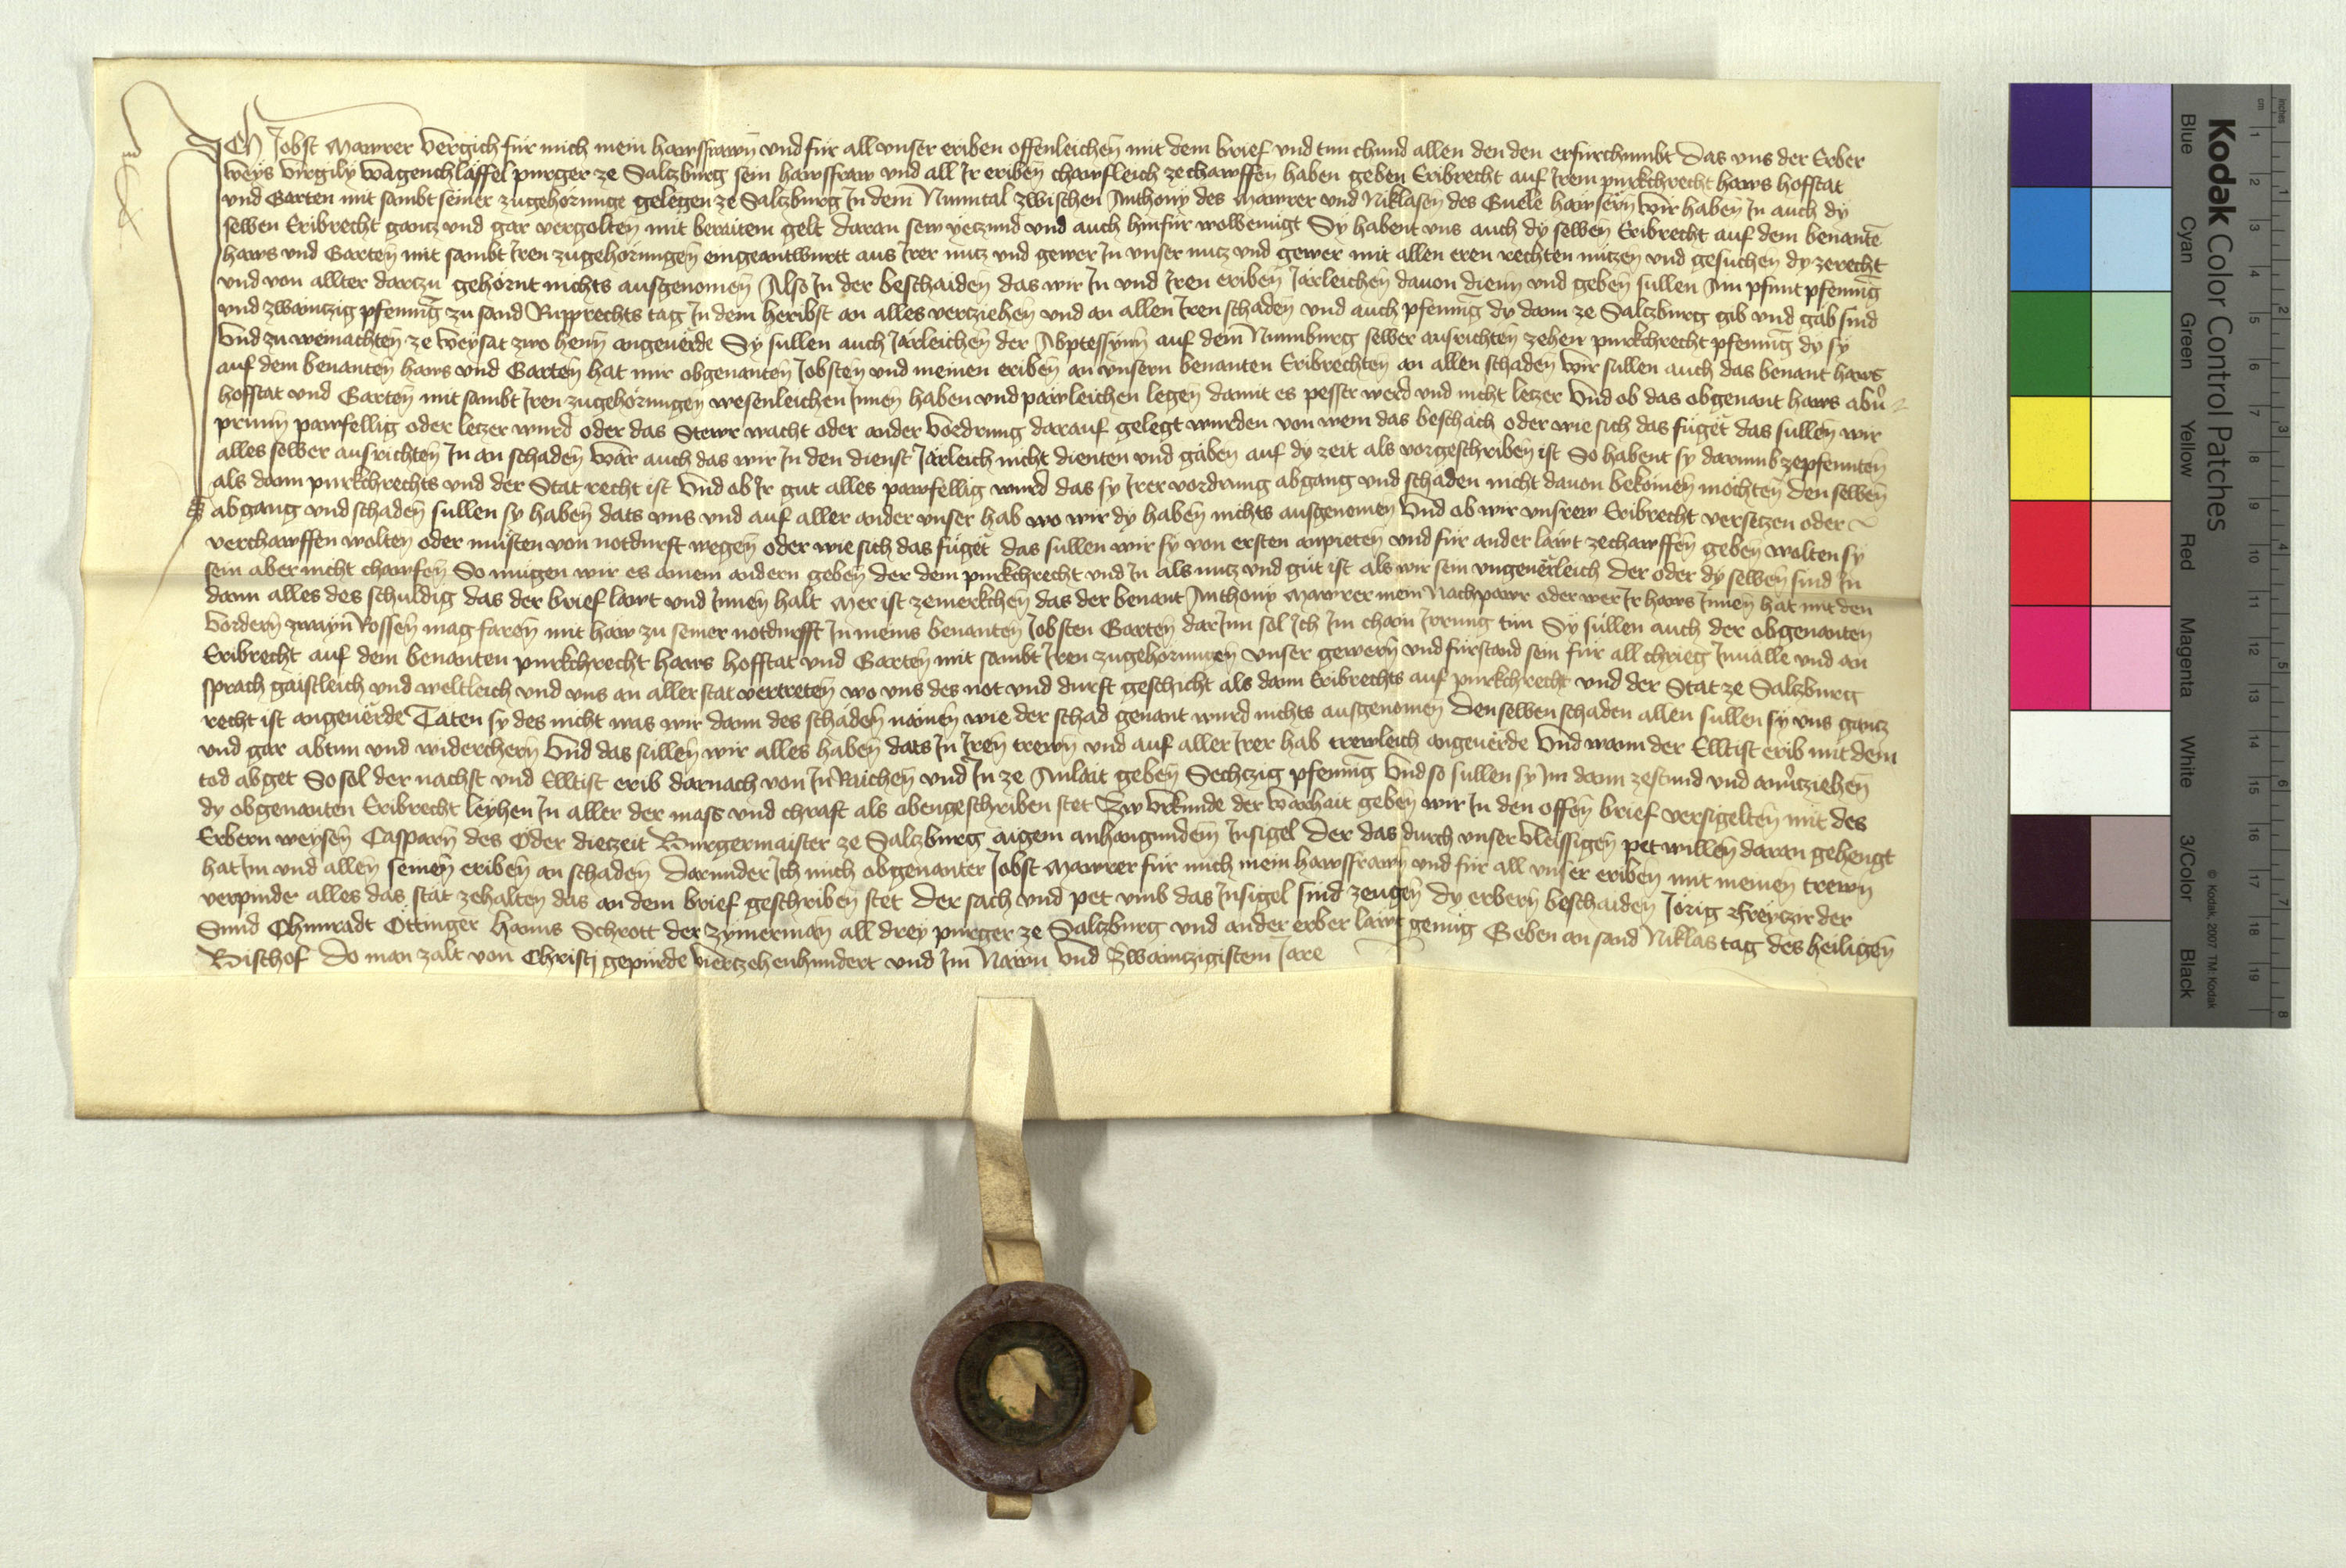 Ich Jobst Mawrer vergich für mich mein hawsfrawn und für all unser eriben offenleichen mit dem brief und tun chund allen den den er fürchumbt Das uns der Erber
weys Virgily Wagenchlaffel purger ze Saltzburg sein hawsfraw und all Ir eriben chawfleich zechawffen haben geben Eribrecht auf Irem purkchrecht haws hofstat
und Garten mit sambt seiner zugehörunge gelegen ze Saltzburg In dem Nunntal zwischen Anthony des Mawrer und Niklasen des Guele hawsern Wir haben In auch dy
selben Eribrecht gantz und gar vergolten mit beraitem gelt daran sew yetzund und auch hinfür wolbenügt Sy habent uns auch dy selben Eribrecht auf dem benanten
haws und Garten mit sambt Iren zugehörungen eingeantwurtt aus Irer nutz und gewer In unser nutz und gewer mit allen eren rechten nützen und gesuchen dy zerecht
und von allter dartzu gehörnt nichts ausgenomen Also In der beschaiden das wir In und Iren eriben Järleichen dauon dienn und geben sullen Ain pfunt pfenning
und zwaintzig pfenning zu sand Rupprechts tag In dem heribst an alles vertziehen und an allen Iren schaden und auch pfenning dy dann ze Saltzburg gib und gäb sind
Und zu weinachten ze weysat zwo henn angeuerde Sy sullen auch Järleichen der Abptessynn auf dem Nunnburg selber ausrichten zehen purkchrecht pfenning dy sy
auf dem benanten haws und Garten hat mir obgenanten Jobsten und meinen eriben an unsern benanten Eribrechten an allen schaden Wir sullen auch das benant haws
hofstat und Garten mit sambt Iren zugehörungen wesenleichen Innen haben und pawleichen legen damit es pesser werd und nicht letzer Und ob das obgenant haws abn
prunn pawfellig oder letzer wurd oder das Stewr wacht oder ander vodrung darauf gelegt wurden von wem das beschäch oder wie sich das fuget das sullen wir
alles selber ausrichten In an schaden Wär auch das wir In den dienst Järleich nicht dienten und gäben auf dy zeit als vorgeschriben ist So habent sy darumb zepfennten
als dann purkchrechts und der Stat recht ist Und ob Ir gut alles pawfellig wurd das sy Irer vordrung abgang und schaden nicht dauon bekomen möchten den selben
abgang und schaden sullen sy haben dats uns und auf aller ander unser hab wo wir dy haben nichts ausgenomen Und ob wir unsrew Eribrecht versetzen oder
verchawffen wolten oder müsten von notdurft wegen oder wie sich das füget das sullen wir sy von ersten anpieten und für ander lawt zechawffen geben wolten sy
sein aber nicht chawfen So mügen wir es ainem andern geben der dem purkchrecht und In als nutz und gut ist als wir sein ungeuerleich der oder dy selben sind In
dann alles des schuldig das der brief lawt und Innen halt Mer ist zemerkchen das der benant Anthony Mawrer mein Nachpawr oder wer Ir haws Innen hat mit den
vordern zwayn Rossen mag faren mit haw zu seiner notdurfft In meins benanten Jobsten Garten darInn sol Ich Im chain Irrung tun Sy sullen auch der obgenanten
Eribrecht auf dem benanten purkchrecht haws hofstat und Garten mit sambt Iren zugehörungen unser gewern und fürstand sein für all chrieg Inualle und an
sprach gaistleich und weltleich und uns an aller stat vertreten wo uns des not und durft geschicht als dann Eribrechts auf purkchrecht und der Stat ze Saltzburg
recht ist angeuerde Täten sy des nicht was wir dann des schaden nämen wie der schad genant wurd nichts ausgenomen Denselben schaden allen sullen sy uns gantz
und gar abtun und widerchern Und das sullen wir alles haben dats In Iren trewn und auf aller Irer hab trewleich angeuerde Und wann der Elltist erib mit dem
tod abget So sol der nachst und Elltist erib darnach von In Raichen und In ze Anlait geben Sechtzig pfenning Und so sullen sy Im dann zestund und anuertziehen
dy obgenanten Eribrecht leyhen In aller der mass und chraft als obengeschriben stet Zw Urkunde der warhait geben wir In den offen brief versigelten mit des
Erbern weysen Casparn des Oder dietzeit Burgermaister ze Saltzburg aigem anhangundem Insigel Der das durch unser vleissigen pet willen daran gehengt
hat Im und allen seinen eriben an schaden Darunder Ich mich obgenanter Jobst Mawrer für mich mein hawsfrawn und für all unser eriben mit meinen trewn
verpinde alles das stät zehalten das an dem brief geschriben stet Der sach und pet umb das Insigel sind zeugen dy erbern beschaiden Jörig Freytzir der
Smid Chunradt Ottinger Hanns Schrott der zymerman all drey purger ze Saltzburg und ander erber lawt genüg Geben an sand Niklas tag des heiligen
Bischof Do man zalt von Christj gepürde viertzehenhundert und Im Nawn und Zwaintzigistem Jare
Kodak Color Control Patches
Blue Cyan Green Yellow Red Magenta White 3/Color Black
© Kodak, 2007 TM: Kodak
cm 1 2 3 4 5 6 7 8 9 10 11 12 13 14 15 16 17 18 19
inches 1 2 3 4 5 6 7 8